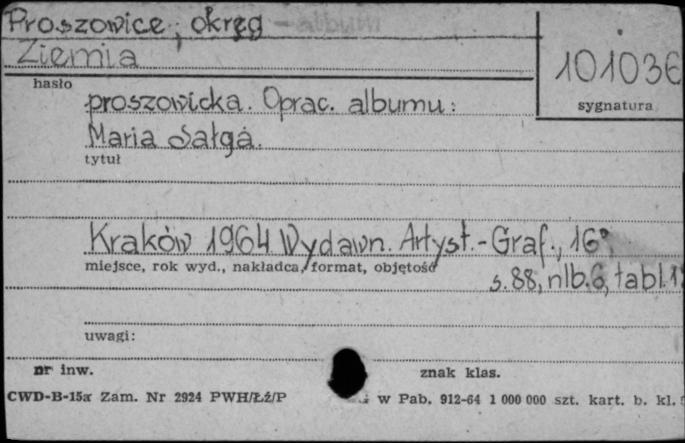 Proszowice, okręg - album
Ziemia
101036
hasło
sygnatura
proszowicka. Oprac. albumu:
Maria Sałga.
tytuł
Kraków 1964 Wydawn. Artyst.-Graf., 16°,
miejsce, rok wyd., nakładca, format, objętość
s. 88, nlb. 6, tabl.
uwagi:
nr inw.
znak klas.
CWD-B-15a Zam. Nr 2924 PWH/Łź/P
w Pab. 912-64 1 000 000 szt. kart. b. kl.